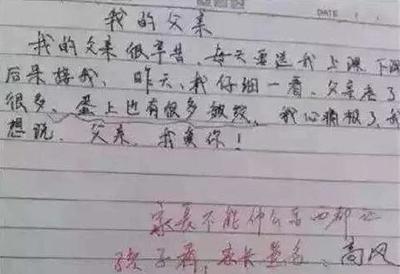 DATE
我的父亲
我的父亲很辛苦、每天要送我上课下课
后来接我、昨天、我仔细一看、父亲老了
很多、蛋上也有很多皱纹，我心痛极了，我
想说，父亲，我臭你！
家长不能什么东西都让
孩子看，家长签名、高风